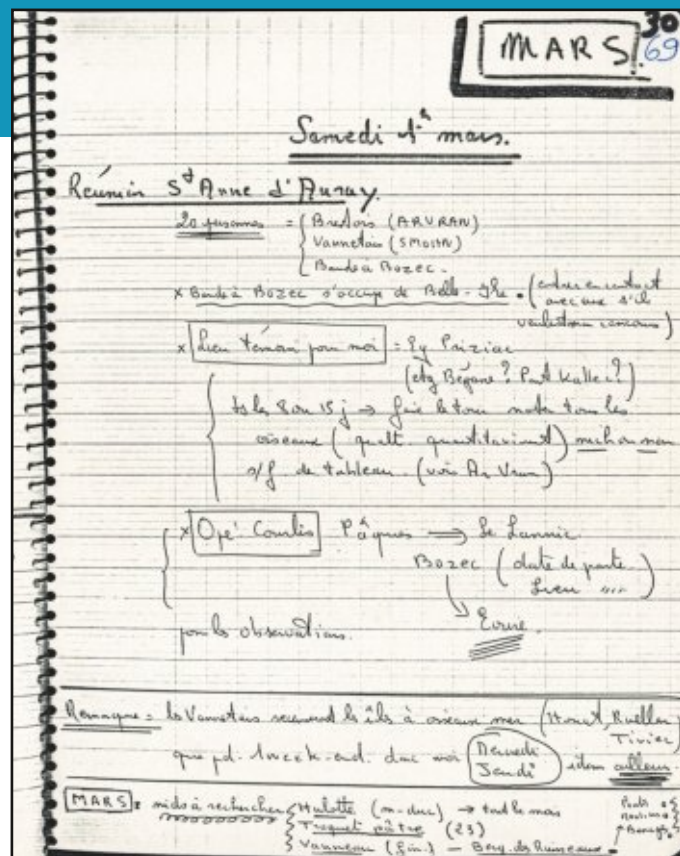 30
MARS 69
Samedi 1er mars.
Réunion Ste Anne d'Auray.
20 personnes = { Brestois (ARVRAN)
Vannetais (
Bande à Bozec.
x Bande à Bozec s'occupe de Belle-Ile. (entrer en contact
avec eux s'ils
x Lieu témoin pour moi = Eg Priziac
(etg Bégane ? Pont Kallec ?)
ts les 8 ou 15 j → faire le tour noter tous les
oiseaux (qualt. quantitativement) nich ou non
s/f. de tableau. (voir Ar Vran)
x Opé Courlis Pâques → Le Lannic
Bozec (date de ponte
Lieu "")
Ecrire.
pour les observations.
Remarque = les Vannetais recensent les îles à oiseaux mer (Houat,
que pd. 1 week-end. donc moi Mercredi
Jeudi idem ailleurs.
MARS = nids à rechercher { Hulotte (m-duc) → tout le mois
Traquet pâtre (23)
Vanneau (fin.) — Berg. des Ruisseaux